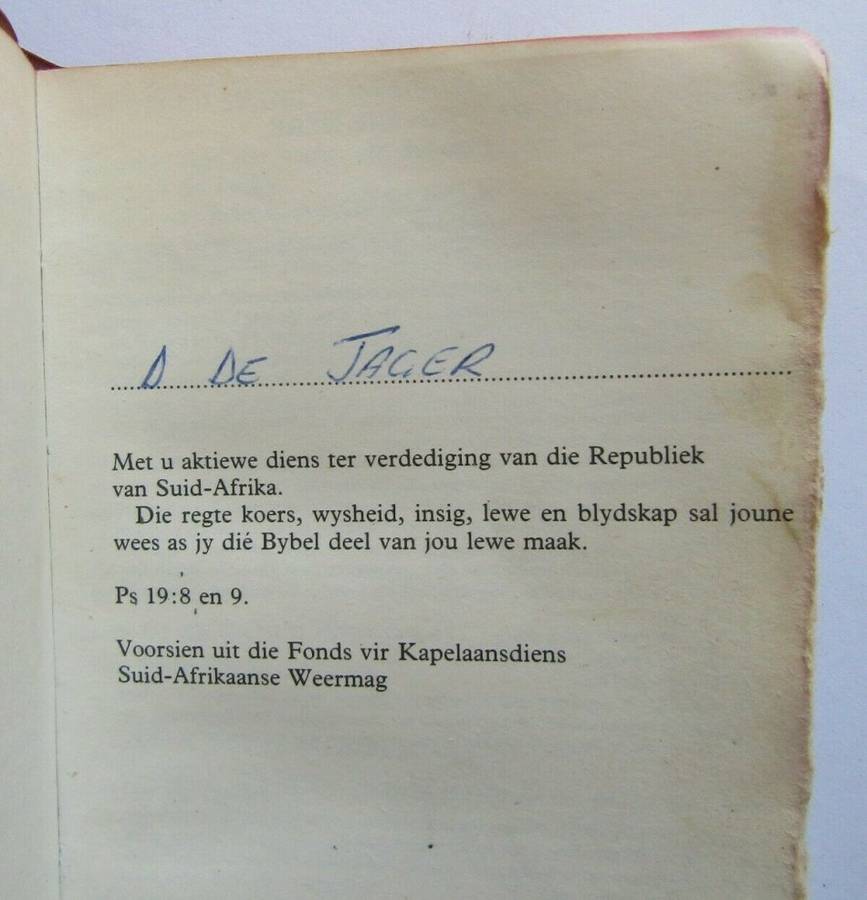 D DE JAGER
Met u aktiewe diens ter verdediging van die Republiek
van Suid-Afrika.
Die regte koers, wysheid, insig, lewe en blydskap sal joune
wees as jy dié Bybel deel van jou lewe maak.
Ps 19:8 en 9.
Voorsien uit die Fonds vir Kapelaansdiens
Suid-Afrikaanse Weermag